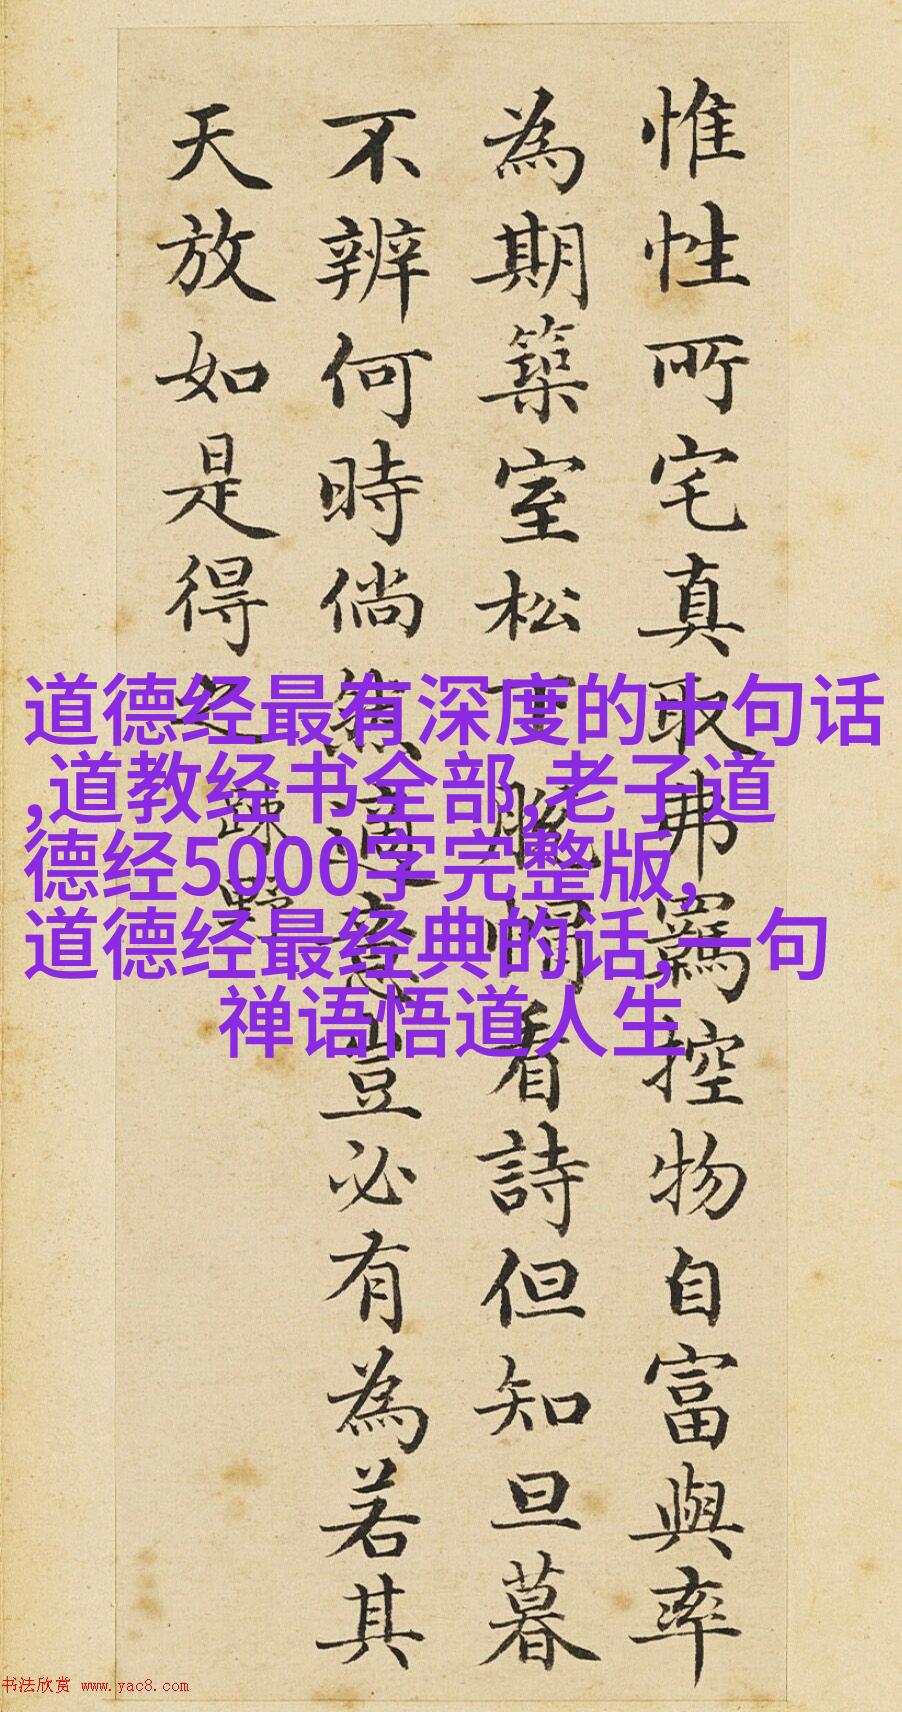 惟性所宅真取弗羈控物自富與率
為期築室松下脫帽看詩但知旦暮
不辨何時倘然適意豈必有為若其
天放如是得之
疎野
道德经最有深度的十句话
,道教经书全部,老子道
德经5000字完整版,
道德经最经典的话,一句
禅语悟道人生
书法欣赏 www.yac8.com